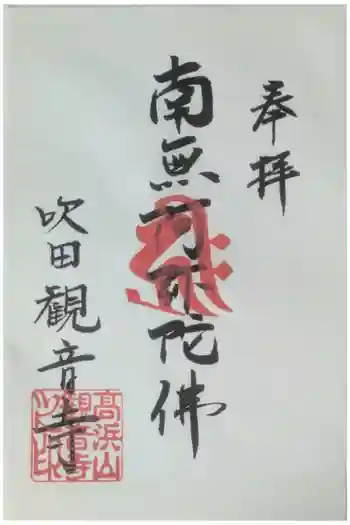 奉拝
南無阿弥陀佛
吹田観音寺
高浜山
観音寺